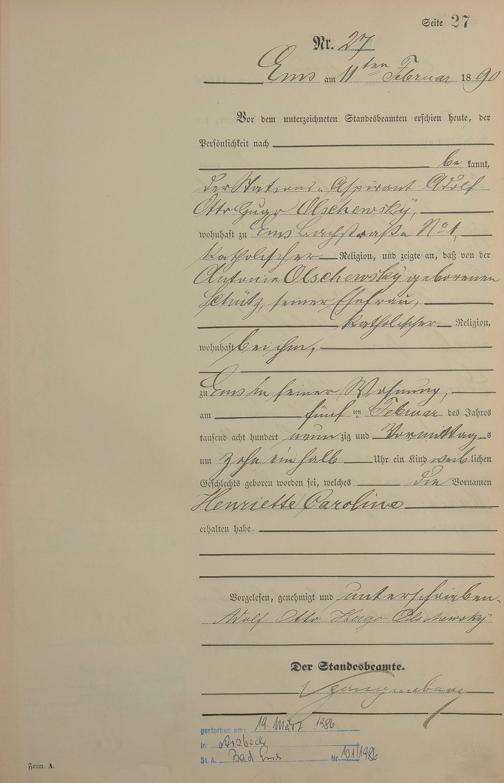 Seite 27
Nr. 27
Ems am 11ten Februar 1890
Vor dem unterzeichneten Standesbeamten erschien heute, der
Persönlichkeit nach
be kannt,
der Stations-Aspirant Adolf
Otto Hugo Olschewsky,
wohnhaft zu Ems Bachstraße No 1,
katholischer Religion, und zeigte an, daß von der
Antonie Olschewsky geborenen
Schütz, seiner Ehefrau,
katholischer Religion,
wohnhaft bei ihm,
zu Ems in seiner Wohnung,
am fünf ten Februar des Jahres
tausend acht hundert neun zig und Vormittags
um zehn ein halb Uhr ein Kind weib lichen
Geschlechts geboren worden sei, welches die Vornamen
Henriette Caroline
erhalten habe.
Vorgelesen, genehmigt und unterschrieben.
Adolf Otto Hugo Olschewsky
Der Standesbeamte.
gestorben am: 19. März 1986
in
St. A. Bad Ems Nr. 101/1986
Form. A.